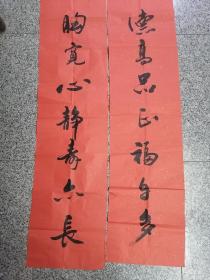 德高品正福自多
胸宽心静寿亦长